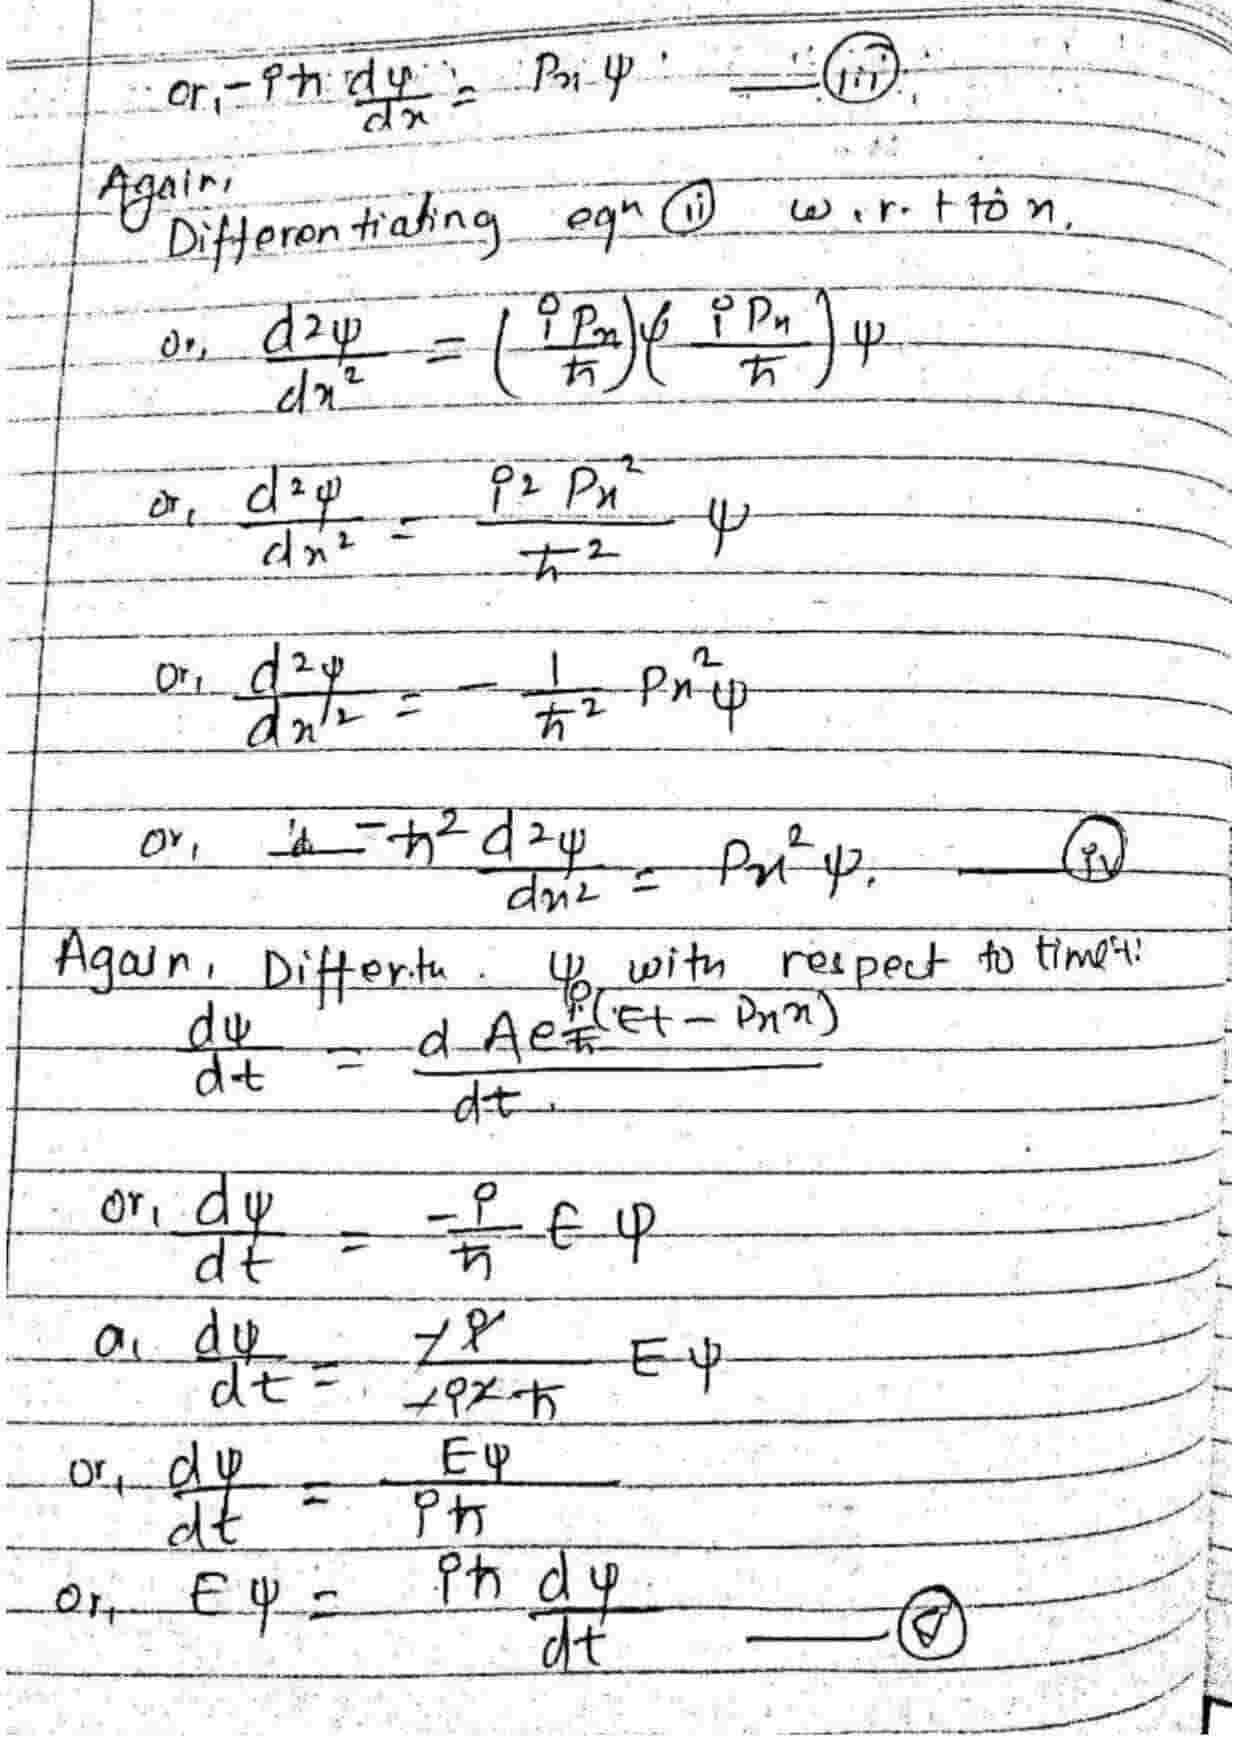 or, -iℏ dψ/dx = Px ψ —— (iii)
Again,
Differentiating eqn (ii) w.r.t to x.
or, d²ψ/dx² = (i Px/ℏ)(i Px/ℏ) ψ
or, d²ψ/dx² = i² Px²/ℏ² ψ
or, d²ψ/dx² = - 1/ℏ² Px² ψ
or, -ℏ² d²ψ/dx² = Px² ψ. —— (iv)
Again, Differtn. ψ with respect to time 't'
dψ/dt = d A e^{i/ℏ (Et - Px x)}/dt.
or, dψ/dt = -i/ℏ E ψ
or, dψ/dt = -i/-i² ℏ E ψ
or, dψ/dt = Eψ/iℏ
or, Eψ = iℏ dψ/dt —— (v)